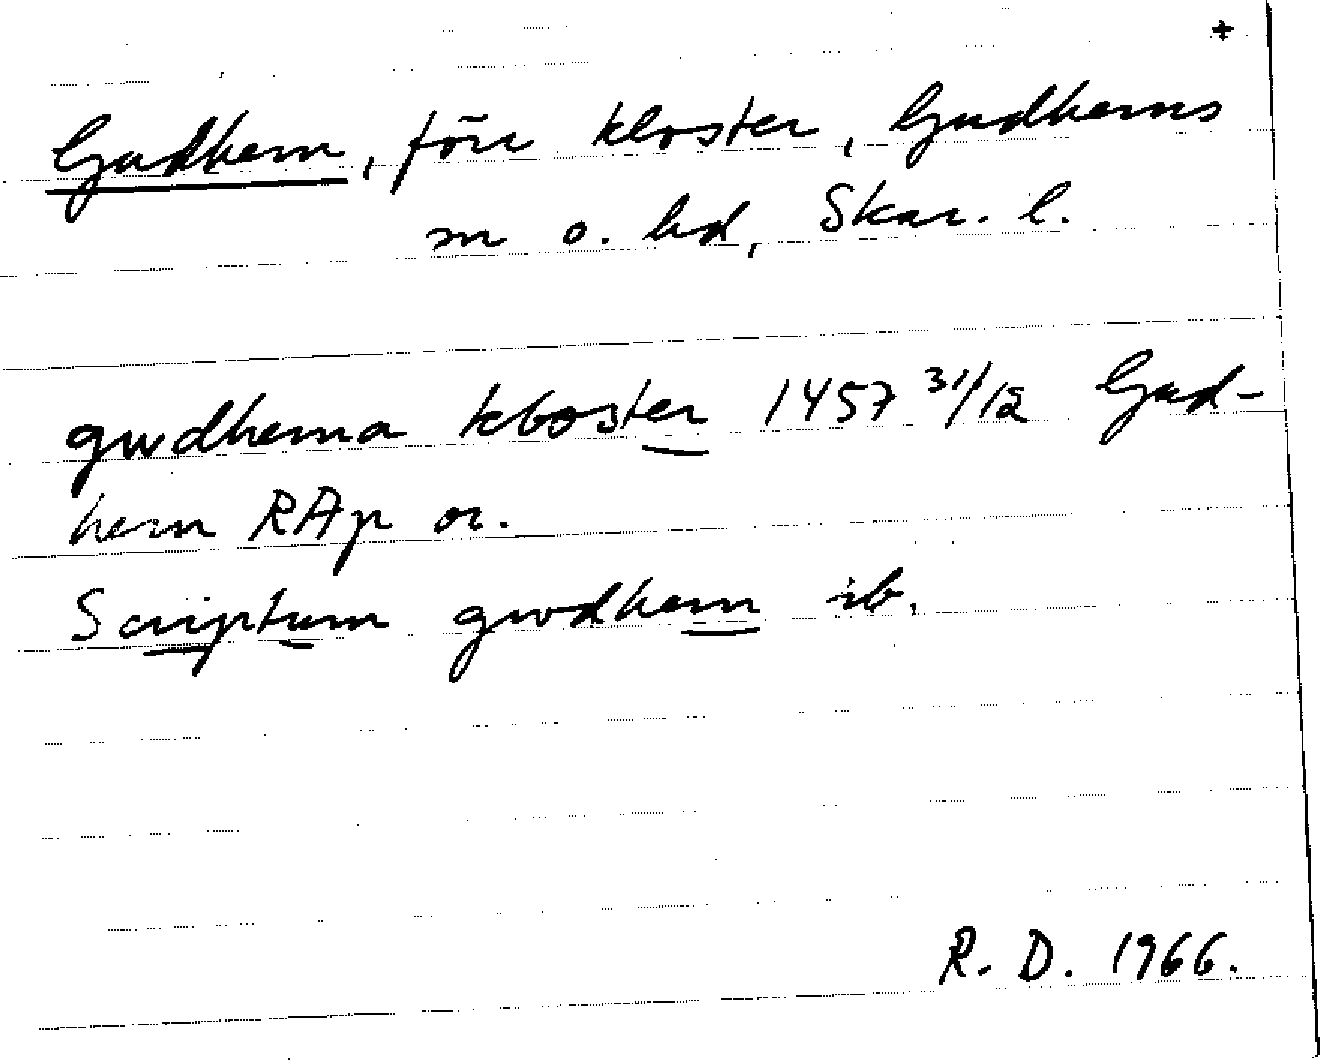 +
Gudhem, förr kloster, Gudhems
sn o. hd, Skar. l.
gwdhema kloster 1457 31/12 Gud-
hem RAp or.
Scriptum gwdhem ib.
R. D. 1966.